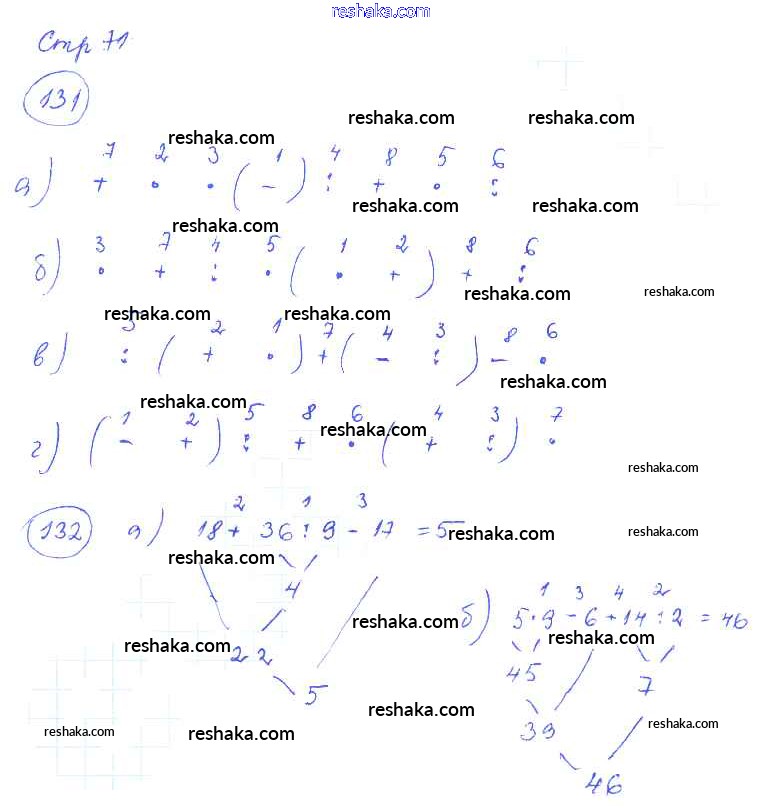 reshaka.com
Стр 71
131
reshaka.com reshaka.com reshaka.com
7 2 3 1 4 8 5 6
а) + · · ( - ) : + · :
reshaka.com reshaka.com reshaka.com
3 7 4 5 1 2 8 6
б) · + : · ( · + ) + :
reshaka.com reshaka.com
reshaka.com reshaka.com
3 2 1 7 4 3 8 6
в) : ( + · ) + ( - : ) - ·
reshaka.com
reshaka.com
1 2 5 8 6 4 3 7
г) ( - + ) : + · ( + : ) ·
reshaka.com
reshaka.com
2 1 3
132 а) 18 + 36 : 9 - 17 = 5
reshaka.com reshaka.com
reshaka.com
4
1 3 4 2
б) 5 · 9 - 6 + 14 : 2 = 46
reshaka.com reshaka.com
reshaka.com
22
45 7
5
reshaka.com
39
reshaka.com reshaka.com reshaka.com
46